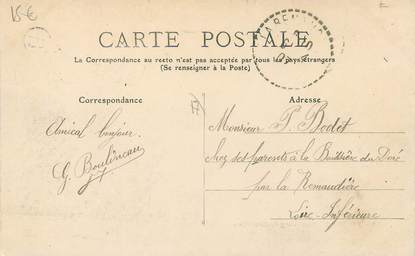 15€
CARTE POSTALE
La Correspondance au recto n'est pas acceptée par tous les pays étrangers
(Se renseigner à la Poste)
Correspondance
Adresse
Amical bonjour.
G. Boulineau
Monsieur P. Bodet
chez ses parents à la Boissière du Doré
par la Remaudière
Loire-Inférieure